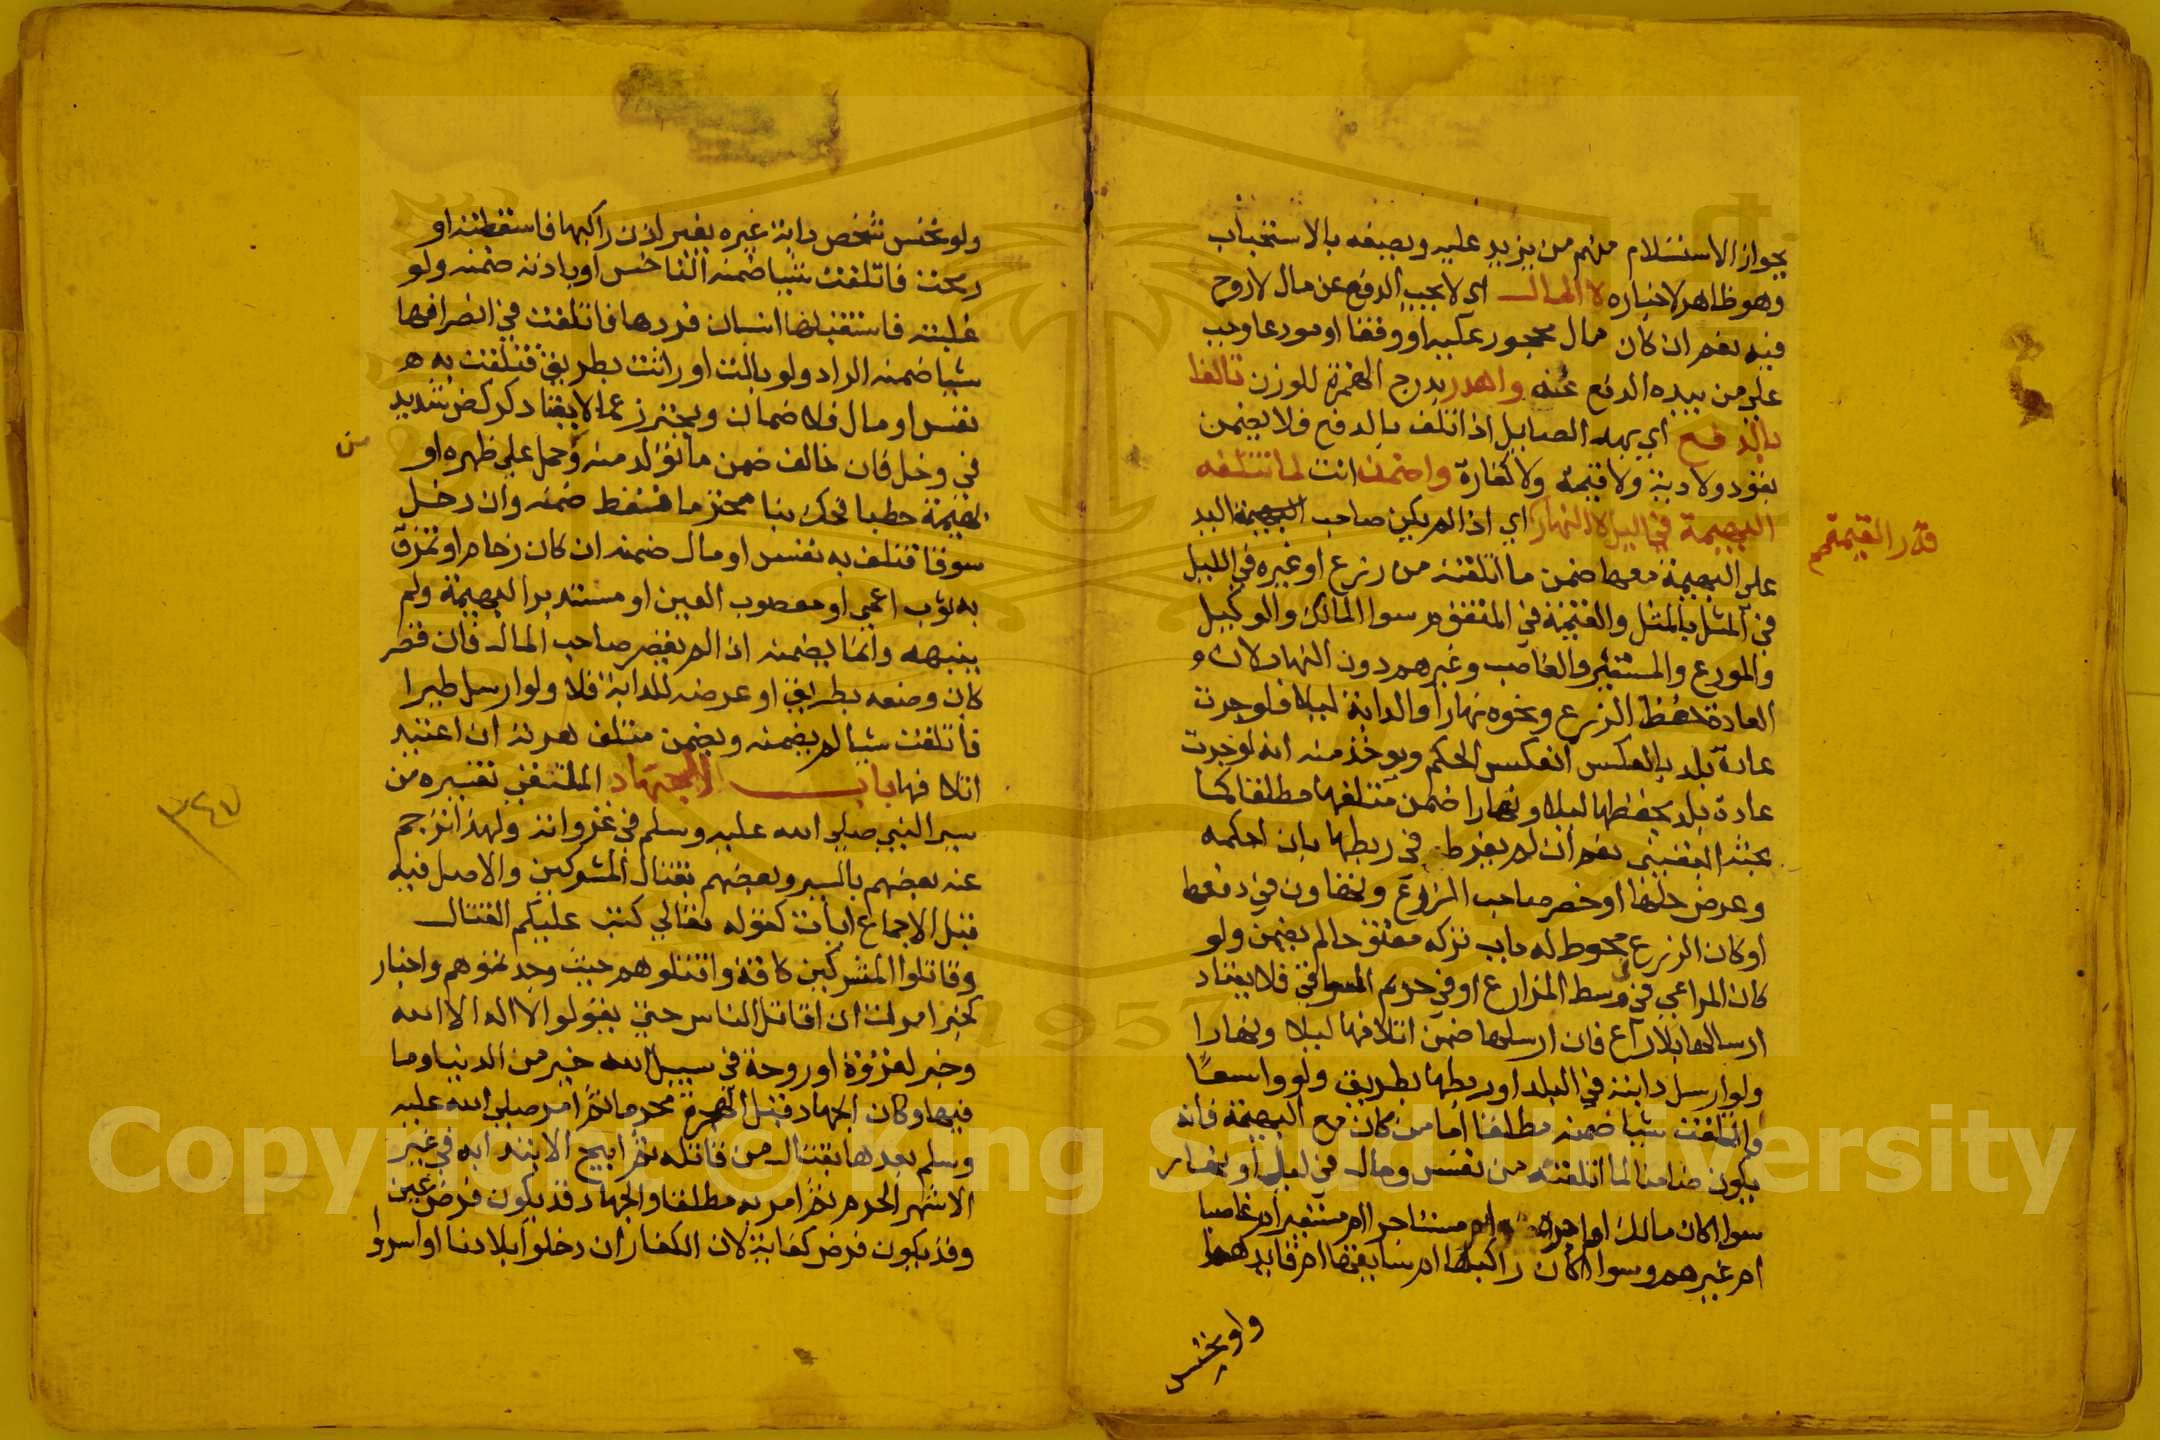 بجواز الاستسلام منهم من يزيد عليه وبصيغه بالاستحباب
وهو ظاهر الاخباره لا المال اي لا يجب الدفع عن مال لا روح
فيه نعم ان كان مال محجور عليه او وقفا او مودعا وجب
علي من بيده الدفع عنه واهدر بدرج الهمزة للوزن تالفا
بالدفع اي يهدر الصايل اذا تلف بالدفع فلا يضمن
بقود ولا دية ولا قيمة ولا كفارة واضمن انت لما تتلفه
البهيمة في الليل لا النهار اي اذا لم يكن صاحب البهيمة اليد
قدر القيمة
علي البهيمة معها ضمن ما اتلفته من زرع او غيره في الليل
في المثل بالمثل والقيمة في المتقوم سوا المالك والوكيل
والمودع والمستعير والغاصب وغيرهم دون النهار لان
العادة حفظ الزرع ونحوه نهارا والدابة ليلا فلو جرت
عادة بلد بالعكس انعكس الحكم ويوخذ منه انه لو جرت
عادة بلد بحفظها ليلا ونهارا ضمن متلفها مطلقا كما
بحثه البلقيني نعم ان لم يفرط في ربطها بان احكمه
وعرض حلها او حضر صاحب الزرع وتهاون في دفعها
او كان الزرع محوط له باب تركه مفتوحا لم يضمن ولو
كان المراعي في وسط المزارع او في حريم السواقي فلا يعتاد
ارسالها بلا راع فان ارسلها ضمن اتلافها ليلا ونهارا
ولو ارسل دابته في البلد او ربطها بطريق ولو واسعا
واتلفت شيا ضمنه مطلقا اما من كان مع البهيمة فانه
يكون ضامنا لما اتلفته من نفس ومال في ليل او نهار
سوا كان مالك ام مستاجرا ام مستعيرا ام غاصبا
ام غيرهم وسوا كان راكبها ام سايقها ام قايدها
ولو نخس
ولو نخس شخص دابة غيره بغير اذن راكبها فاسقطته او
رمحت فاتلفت شيا ضمنه الناخس او باذنه ضمنه ولو
غلبته فاستقبلها انسان فردها فاتلفت في انصرافها
شيا ضمنه الراد ولو بالت او راثت بطريق فتلفت به
نفس او مال فلا ضمان ويحترز عما لا يعتاد كركض شديد
في وحل فان خالف ضمن ما تولد منه وحمل علي ظهره او
من
بهيمة حطبا فحك بنا محترما فسقط ضمنه وان دخل
سوقا فتلف به نفس او مال ضمنه ان كان زحام او تمزق
به ثوب اعمي او معصوب العين او مستدبر البهيمة ولم
ينبهه وانما يضمنه اذا لم يقصر صاحب المال فان قصر
كان وضعه بطريق او عرضه للدابة فلا ولو ارسل طيرا
فاتلفت شيا لم يضمنه ويضمن متلف هرته ان اعتيد
اتلافها باب الجهاد الملتقي تفسيره من
سير النبي صلي الله عليه وسلم في غزواته ولهذا ترجم
عنه بعضهم بالسير وبعضهم بقتال المشركين والاصل فيه
قبل الاجماع ايات كقوله تعالي كتب عليكم القتال
وقاتلوا المشركين كافة واقتلوهم حيث وجدتموهم واخبار
كخبر امرت ان اقاتل الناس حتي يقولوا لا اله الا الله
وخبر لغزوة او روحة في سبيل الله خير من الدنيا وما
فيها وكان الجهاد قبل الهجرة محرما ثم امر صلي الله عليه
وسلم بعدها بقتال من قاتله ثم ابيح الابتدا به في غير
الاشهر الحرم ثم امر به مطلقا والجهاد قد يكون فرض عين
وقد يكون فرض كفاية لان الكفار ان دخلوا بلادنا او اسروا
٣٤٧
1957
Copyright © King Saud University